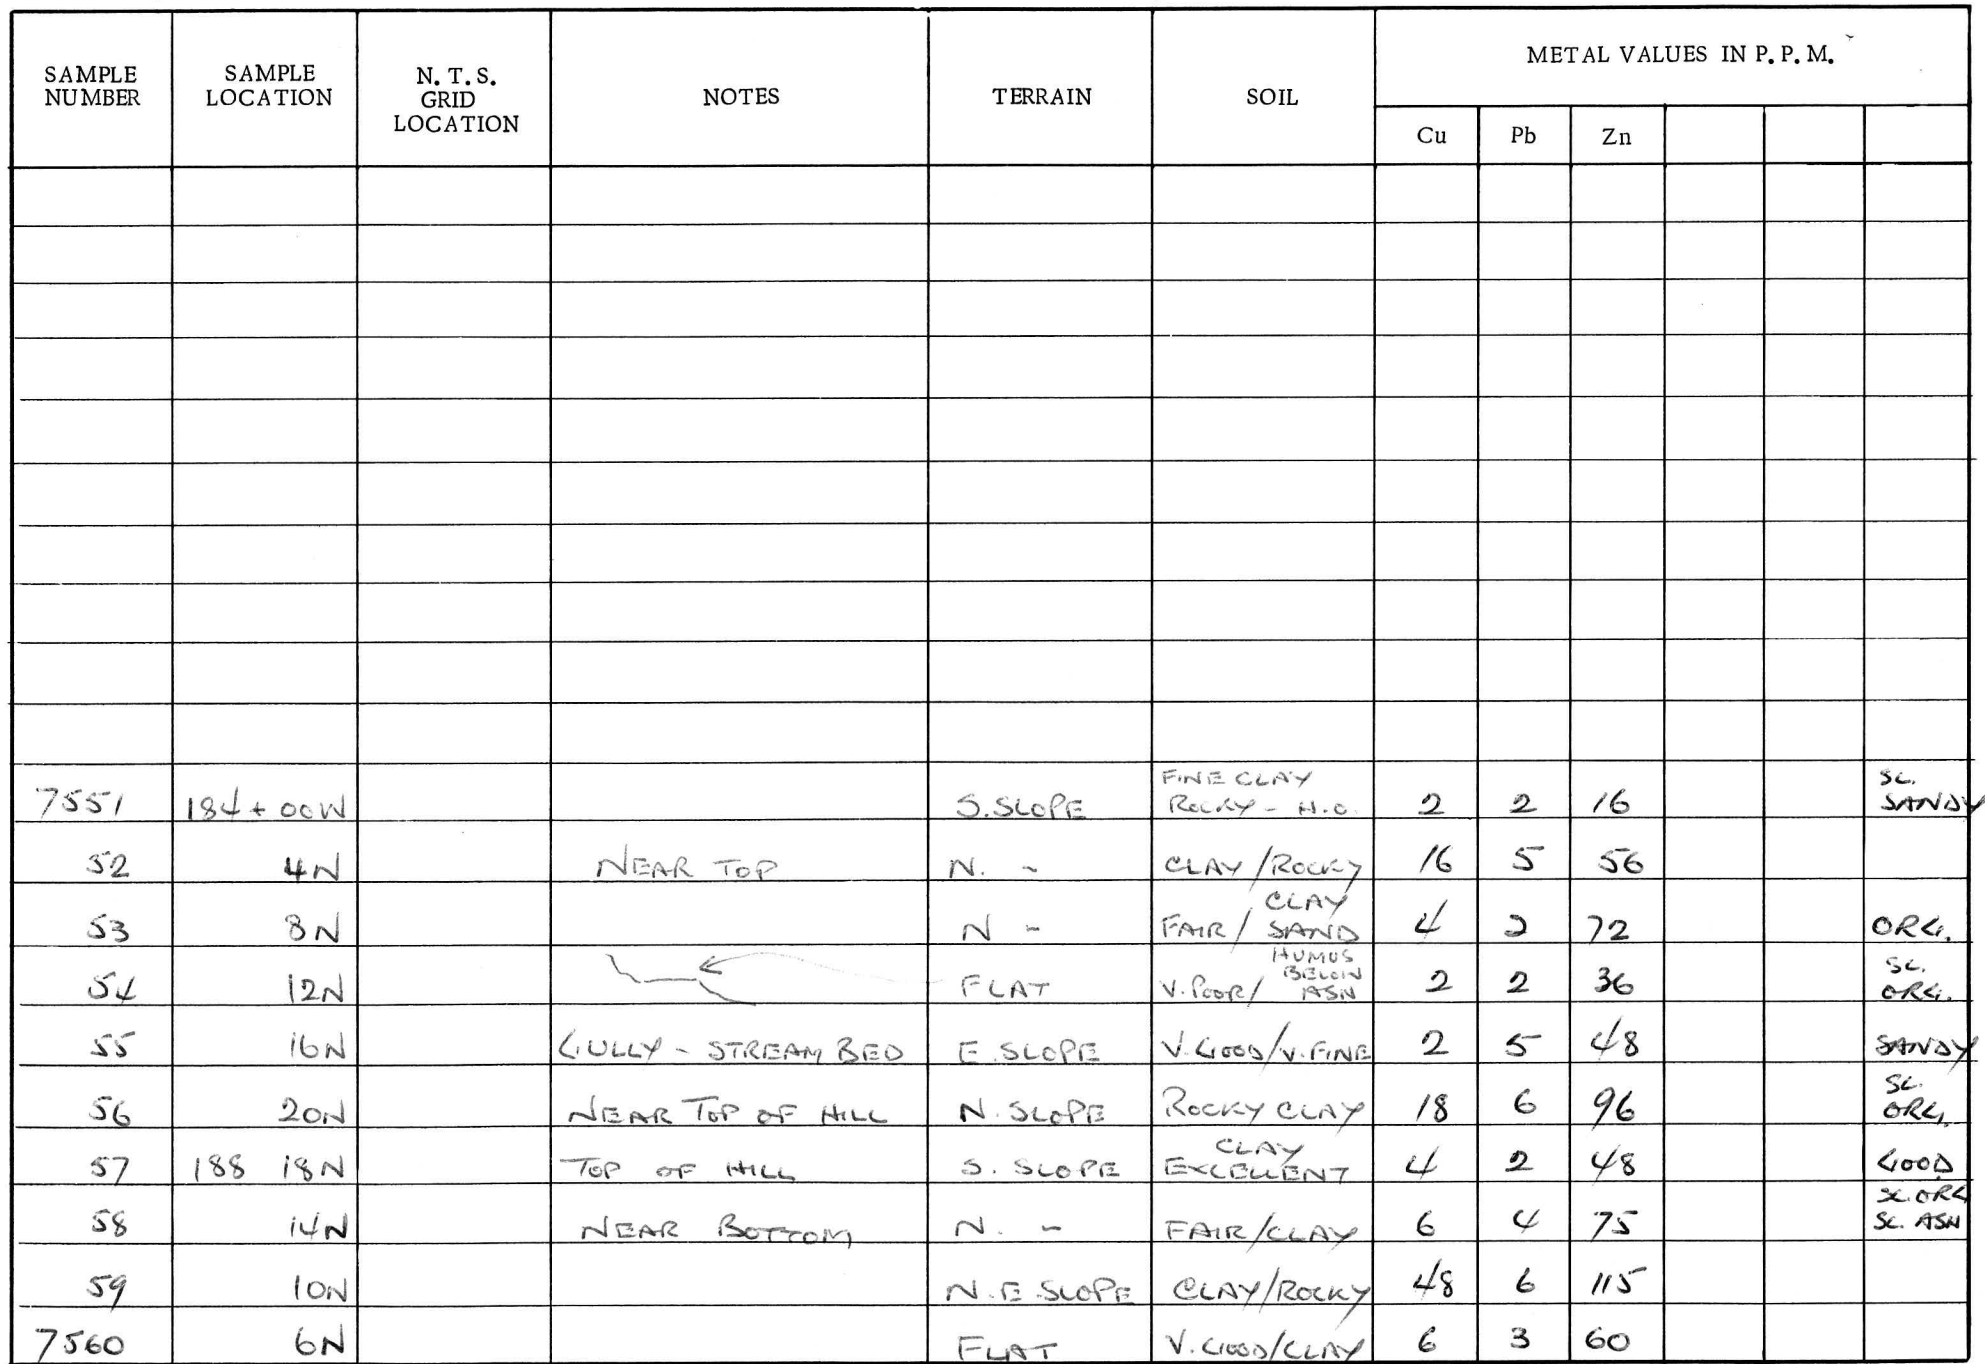 SAMPLE NUMBER SAMPLE LOCATION N. T. S. GRID LOCATION NOTES TERRAIN SOIL METAL VALUES IN P. P. M.
Cu Pb Zn
7551 184+00W S. SLOPE FINE CLAY ROCKY - H.O. 2 2 16 SL. SANDY
52 4N NEAR TOP N. - CLAY/ROCKY 16 5 56
53 8N N - FAIR/ CLAY SAND 4 2 72 ORG.
54 12N FLAT V. POOR/ HUMUS BELOW ASH 2 2 36 SL. ORG.
55 16N GULLY - STREAM BED E. SLOPE V. GOOD/V. FINE 2 5 48 SANDY
56 20N NEAR TOP OF HILL N. SLOPE ROCKY CLAY 18 6 96 SL. ORG.
57 188 18N TOP OF HILL S. SLOPE CLAY EXCELLENT 4 2 48 GOOD
58 14N NEAR BOTTOM N. - FAIR/CLAY 6 4 75 SL. ORG SL. ASH
59 10N N.E. SLOPE CLAY/ROCKY 48 6 115
7560 6N FLAT V. GOOD/CLAY 6 3 60